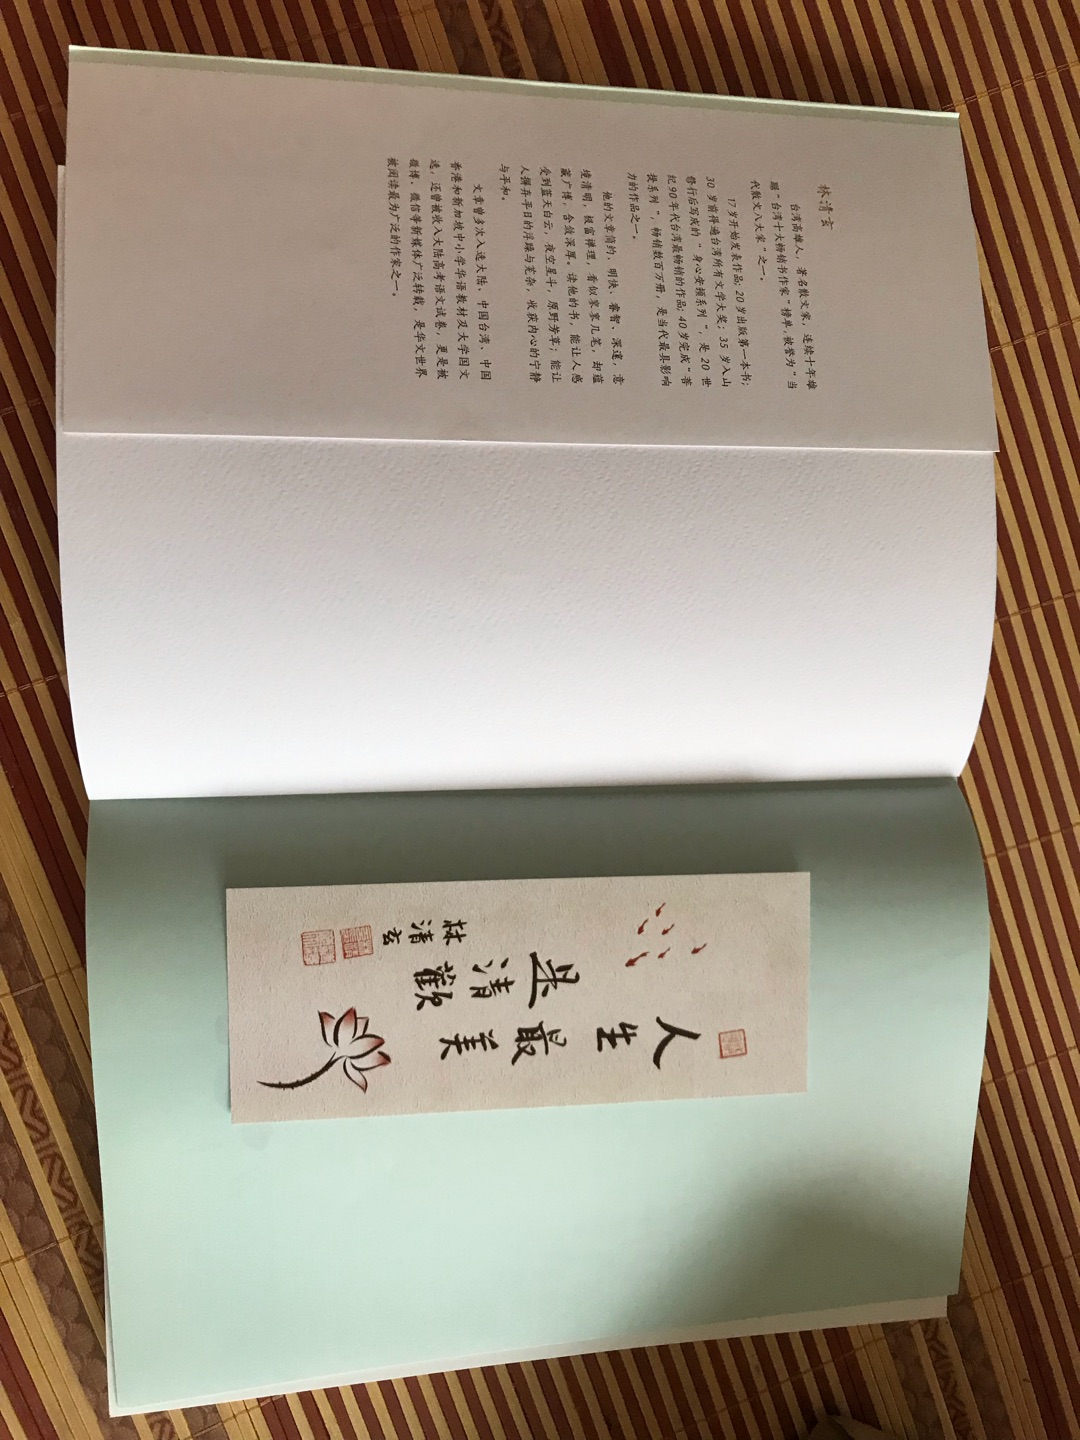 林清玄
台湾高雄人，著名散文家，连续十年雄
踞“台湾十大畅销书作家”榜单，被誉为“当
代散文八大家”之一。
17岁开始发表作品；20岁出版第一本书；
30岁前得遍台湾所有文学大奖；35岁入山
修行后写成的“身心安顿系列”，是20世
纪90年代台湾最畅销的作品；40岁完成“菩
提系列”，畅销数百万册，是当代最具影响
力的作品之一。
他的文章简约、明快、睿智、深邃，意
境清明，极富禅理，看似寥寥几笔，却蕴
藏广博，含敛深厚。读他的书，能让人感
受到蓝天白云，夜空星斗，原野芳草；能让
人摒弃平日的浮躁与芜杂，收获内心的宁静
与平和。
文章曾多次入选大陆、中国台湾、中国
香港和新加坡中小学华语教材及大学国文
选，还曾被收入大陆高考语文试卷，更是被
微博、微信等新媒体广泛转载，是华文世界
被阅读最为广泛的作家之一。
人生最美
是清歡
林清玄